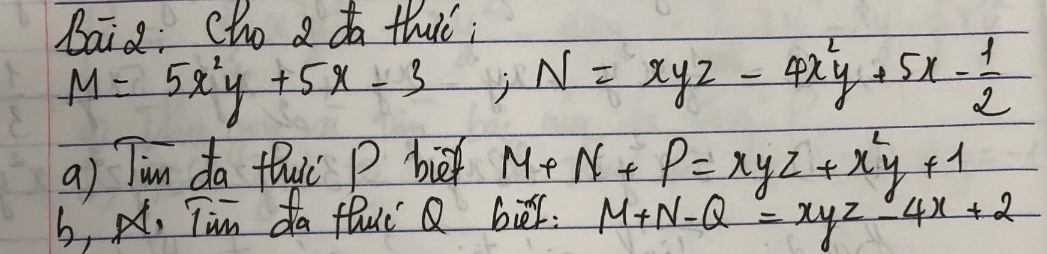 Bài 2: Cho 2 đa thức;
M = 5x²y + 5x - 3 ; N = xyz - 4x²y + 5x - 1/2
a) Tìm đa thức P biết M + N + P = xyz + x²y + 1
b, Tìm đa thức Q biết: M + N - Q = xyz - 4x + 2